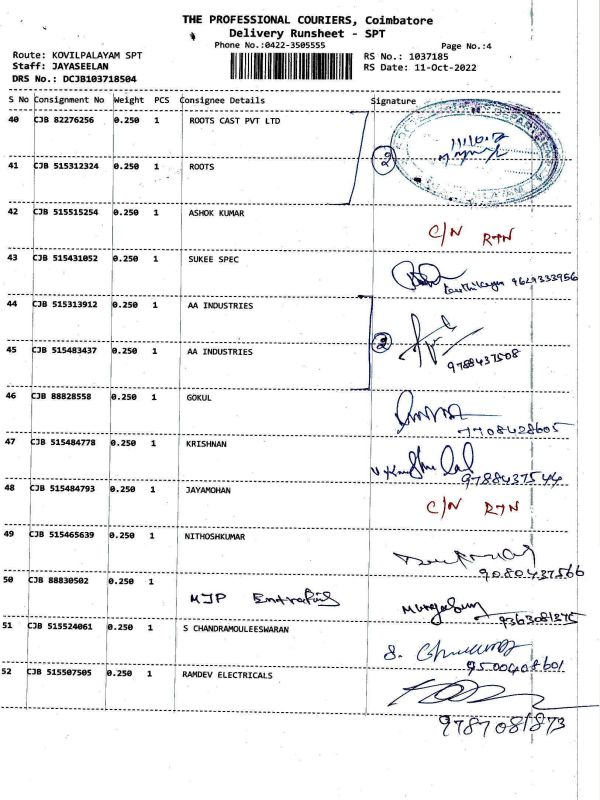 THE PROFESSIONAL COURIERS, Coimbatore
Delivery Runsheet - SPT
Phone No.:0422-3505555
Page No.:4
Route: KOVILPALAYAM SPT
RS No.: 1037185
Staff: JAYASEELAN
RS Date: 11-Oct-2022
DRS No.: DCJB103718504
S No Consignment No Weight PCS Consignee Details Signature
40 CJB 82276256 0.250 1 ROOTS CAST PVT LTD
2
41 CJB 515312324 0.250 1 ROOTS
42 CJB 515515254 0.250 1 ASHOK KUMAR
C/N RTN
43 CJB 515431052 0.250 1 SUKEE SPEC
karthikeyan 9629333956
44 CJB 515313912 0.250 1 AA INDUSTRIES
2
45 CJB 515483437 0.250 1 AA INDUSTRIES
9788437508
46 CJB 88828558 0.250 1 GOKUL
7708428605
47 CJB 515484778 0.250 1 KRISHNAN
9788437544
48 CJB 515484793 0.250 1 JAYAMOHAN
C/N RTN
49 CJB 515465639 0.250 1 NITHOSHKUMAR
9080437566
50 CJB 88830502 0.250 1 MJP
9363081375
51 CJB 515524061 0.250 1 S CHANDRAMOULEESWARAN
9500408601
52 CJB 515507505 0.250 1 RAMDEV ELECTRICALS
9787081873